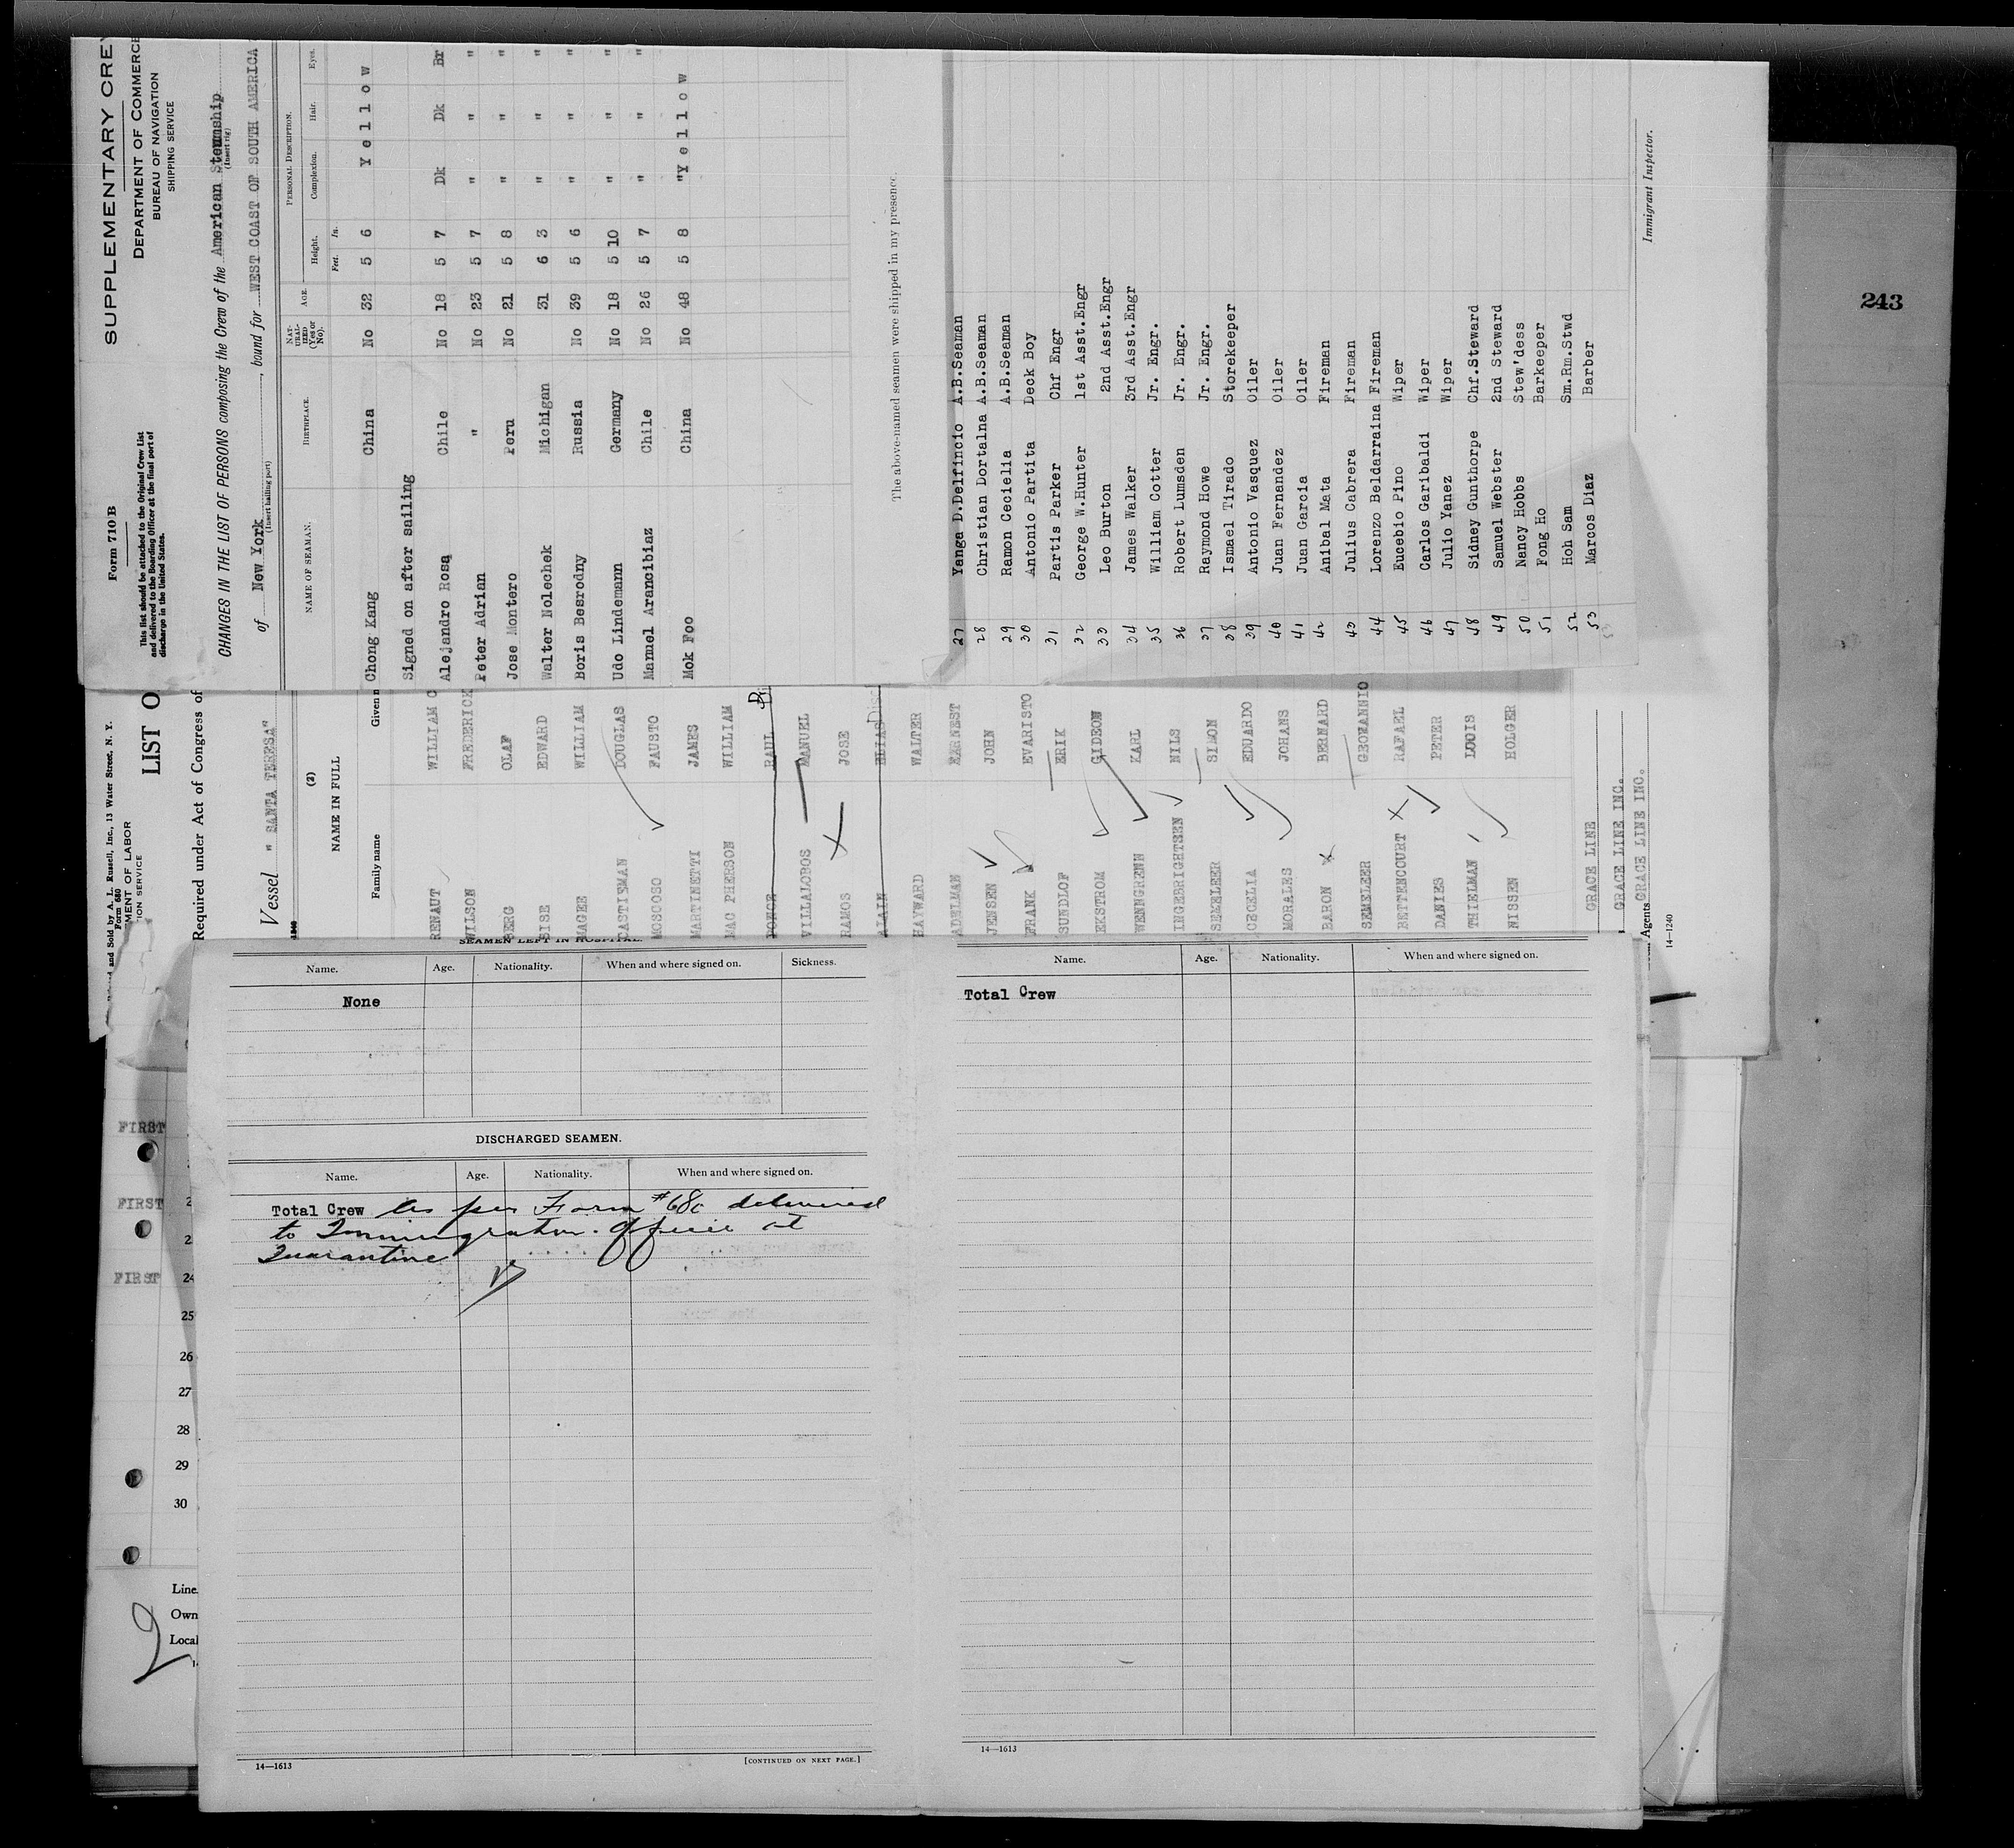 SUPPLEMENTARY CREW
DEPARTMENT OF COMMERCE
BUREAU OF NAVIGATION
SHIPPING SERVICE
Form 710 B
This list should be attached to the Original Crew List
and delivered to the Boarding Officer at the final port of
discharge in the United States.
CHANGES IN THE LIST OF PERSONS composing the Crew of the American Steamship
(Insert rig)
of New York, bound for WEST COAST OF SOUTH AMERICA
(Insert hailing port)
NAME OF SEAMAN. BIRTHPLACE. NAT-URAL-IZED (Yes or No). AGE. PERSONAL DESCRIPTION.
Height. Complexion. Hair. Eyes.
Feet. In.
Chong Kang China No 32 5 6 Yellow
Signed on after sailing
Alejandro Rosa Chile No 18 5 7 Dk Dk Br
Peter Adrian " No 23 5 7 " " "
Jose Montero Peru No 21 5 8 " " "
Walter Nolechek Michigan 31 6 3 " " "
Boris Besrodny Russia No 39 5 6 " " "
Udo Lindemann Germany No 18 5 10 " " "
Manuel Arancibiaz Chile No 26 5 7 " " "
Mok Foo China No 48 5 8 "Yellow
The above-named seamen were shipped in my presence.
27 Yanga D.Delfincio A.B.Seaman
28 Christian Dortalna A.B.Seaman
29 Ramon Cecielia A.B.Seaman
30 Antonio Partita Deck Boy
31 Partis Parker Chf Engr
32 George W.Hunter 1st Asst.Engr
33 Leo Burton 2nd Asst.Engr
34 James Walker 3rd Asst.Engr
35 William Cotter Jr. Engr.
36 Robert Lumsden Jr. Engr.
37 Raymond Howe Jr. Engr.
38 Ismael Tirado Storekeeper
39 Antonio Vasquez Oiler
40 Juan Fernandez Oiler
41 Juan Garcia Oiler
42 Anibal Mata Fireman
43 Julius Cabrera Fireman
44 Lorenzo Beldarraina Fireman
45 Eucebio Pino Wiper
46 Carlos Garibaldi Wiper
47 Julio Yanez Wiper
48 Sidney Gunthorpe Chf.Steward
49 Samuel Webster 2nd Steward
50 Nancy Hobbs Stew'dess
51 Fong Ho Barkeeper
52 Hoh Sam Sm.Rm.Stwd
53 Marcos Diaz Barber
Immigrant Inspector.
243
and Sold by A. L. Russell, Inc., 13 Water Street, N. Y.
Form 680
MENT OF LABOR
ION SERVICE
LIST O
Required under Act of Congress of
Vessel " SANTA TERESA"
(2)
NAME IN FULL
Family name Given n
RENAUT WILLIAM C
WILSON FREDERICK
BERG OLAF
BISE EDWARD
MAGEE WILLIAM
EASTIEMAN DOUGLAS
MOSCOSO FAUSTO
MARTINETTI JAMES
MAC PHERSON WILLIAM
PONCE RAUL
VILLALOBOS MANUEL
RAMOS JOSE
ALAIN
HAYWARD WALTER
ADELMAN ERNEST
JENSEN JOHN
FRANK EVARISTO
SUNDLOF ERIK
EKSTROM GIDEON
WENNGRENN KARL
INGEBRIGHTSEN NILS
SEMELEER SIMON
CECELIA EDUARDO
MORALES JOHANS
BARON BERNARD
SEMELEER GEOWANNIO
BETTENCOURT RAFAEL
DANIES PETER
THIELMAN LOUIS
NISSEN HOLGER
GRACE LINE
GRACE LINE INC.
Agents GRACE LINE INC.
14—1240
SEAMEN LEFT IN HOSPITAL.
Name. Age. Nationality. When and where signed on. Sickness.
None
DISCHARGED SEAMEN.
Name. Age. Nationality. When and where signed on.
Total Crew as per Form #680 delivered
to Immigration Office at
Quarantine
14—1613 [CONTINUED ON NEXT PAGE.]
Name. Age. Nationality. When and where signed on.
Total Crew
14—1613
FIRST
FIRST
FIRST
24
25
26
27
28
29
30
Line
Own
Local